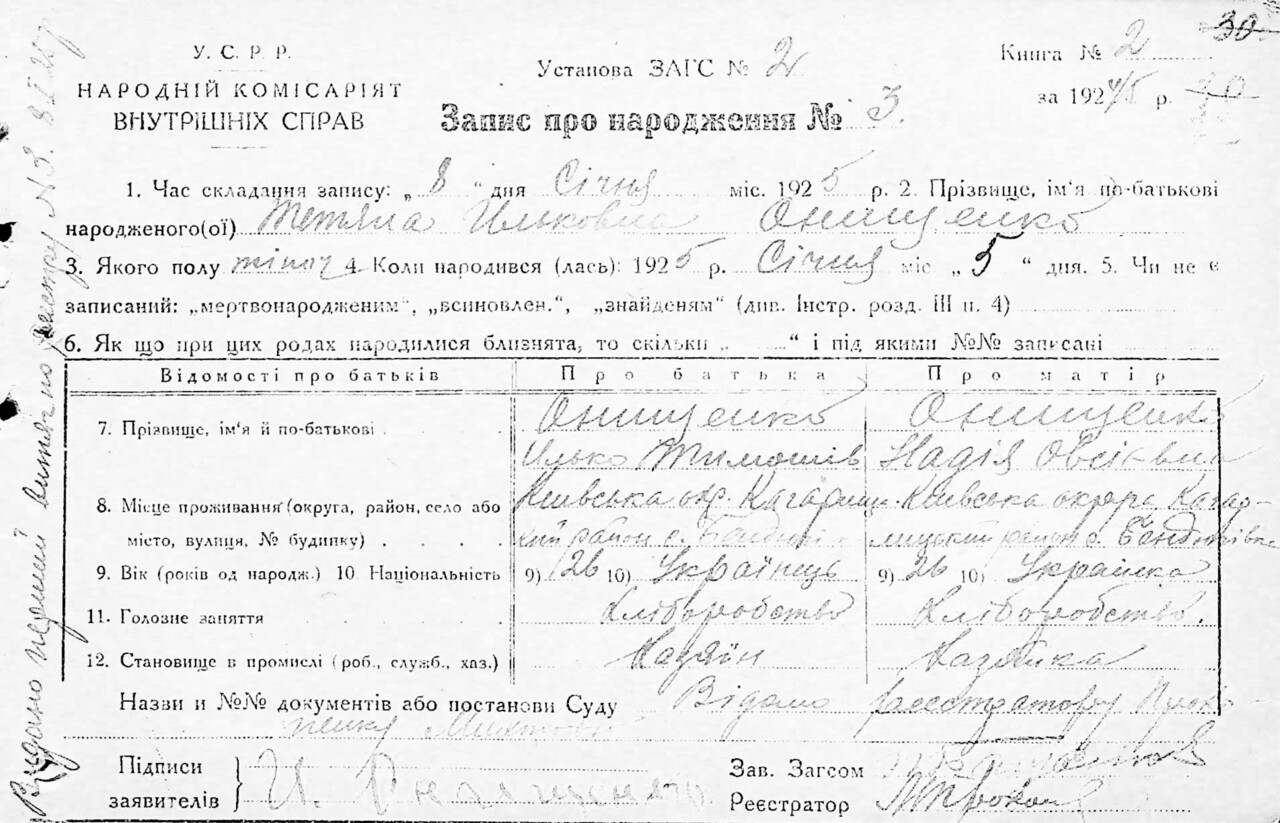 30
У. С. Р. Р.
НАРОДНІЙ КОМІСАРІЯТ
ВНУТРІШНІХ СПРАВ
Установа ЗАГС № 2
Книга № 2
за 1924/5 р. 30
Запис про народження № 3.
1. Час складання запису: „ 8 “ дня Січня міс. 1925 р. 2. Прізвище, ім'я по-батькові
народженого(ої) Тетяна Ильковна Онищенко
3. Якого полу жіноч 4. Коли народився (лась): 1925 р. Січня міс „ 5 “ дня. 5. Чи не є
записаний: „мертвонародженим“, „всиновлен.“, „знайденям“ (див. Інстр. розд. III п. 4)
6. Як що при цих родах народилися близнята, то скільки „ “ і під якими №№ записані
Відомості про батьків Про батька Про матір
7. Прізвище, ім'я й по-батькові Онищенко Онищенк
Илько Тимошів Надія Овсіївна
8. Місце проживання (округа, район, село або Київська окр. Кагарлиц Київська округа Кагар
місто, вулиця, № будинку) кий район с. лицький район с. Бендюгівка
9. Вік (років од народж.) 10 Національність 9) 26 10) Українець 9) 26 10) Українка
11. Головне заняття Хліборобство Хліборобство.
12. Становище в промислі (роб., служб., хаз.) Хазяїн Хазяйка
Назви и №№ документів або постанови Суду Відомо реєстратору Проко
пенку
Підписи
заявителів И. Онищенко
Зав. Загсом
Реєстратор
Видано перший витяг по реєстру № 3. 8/I 25 р